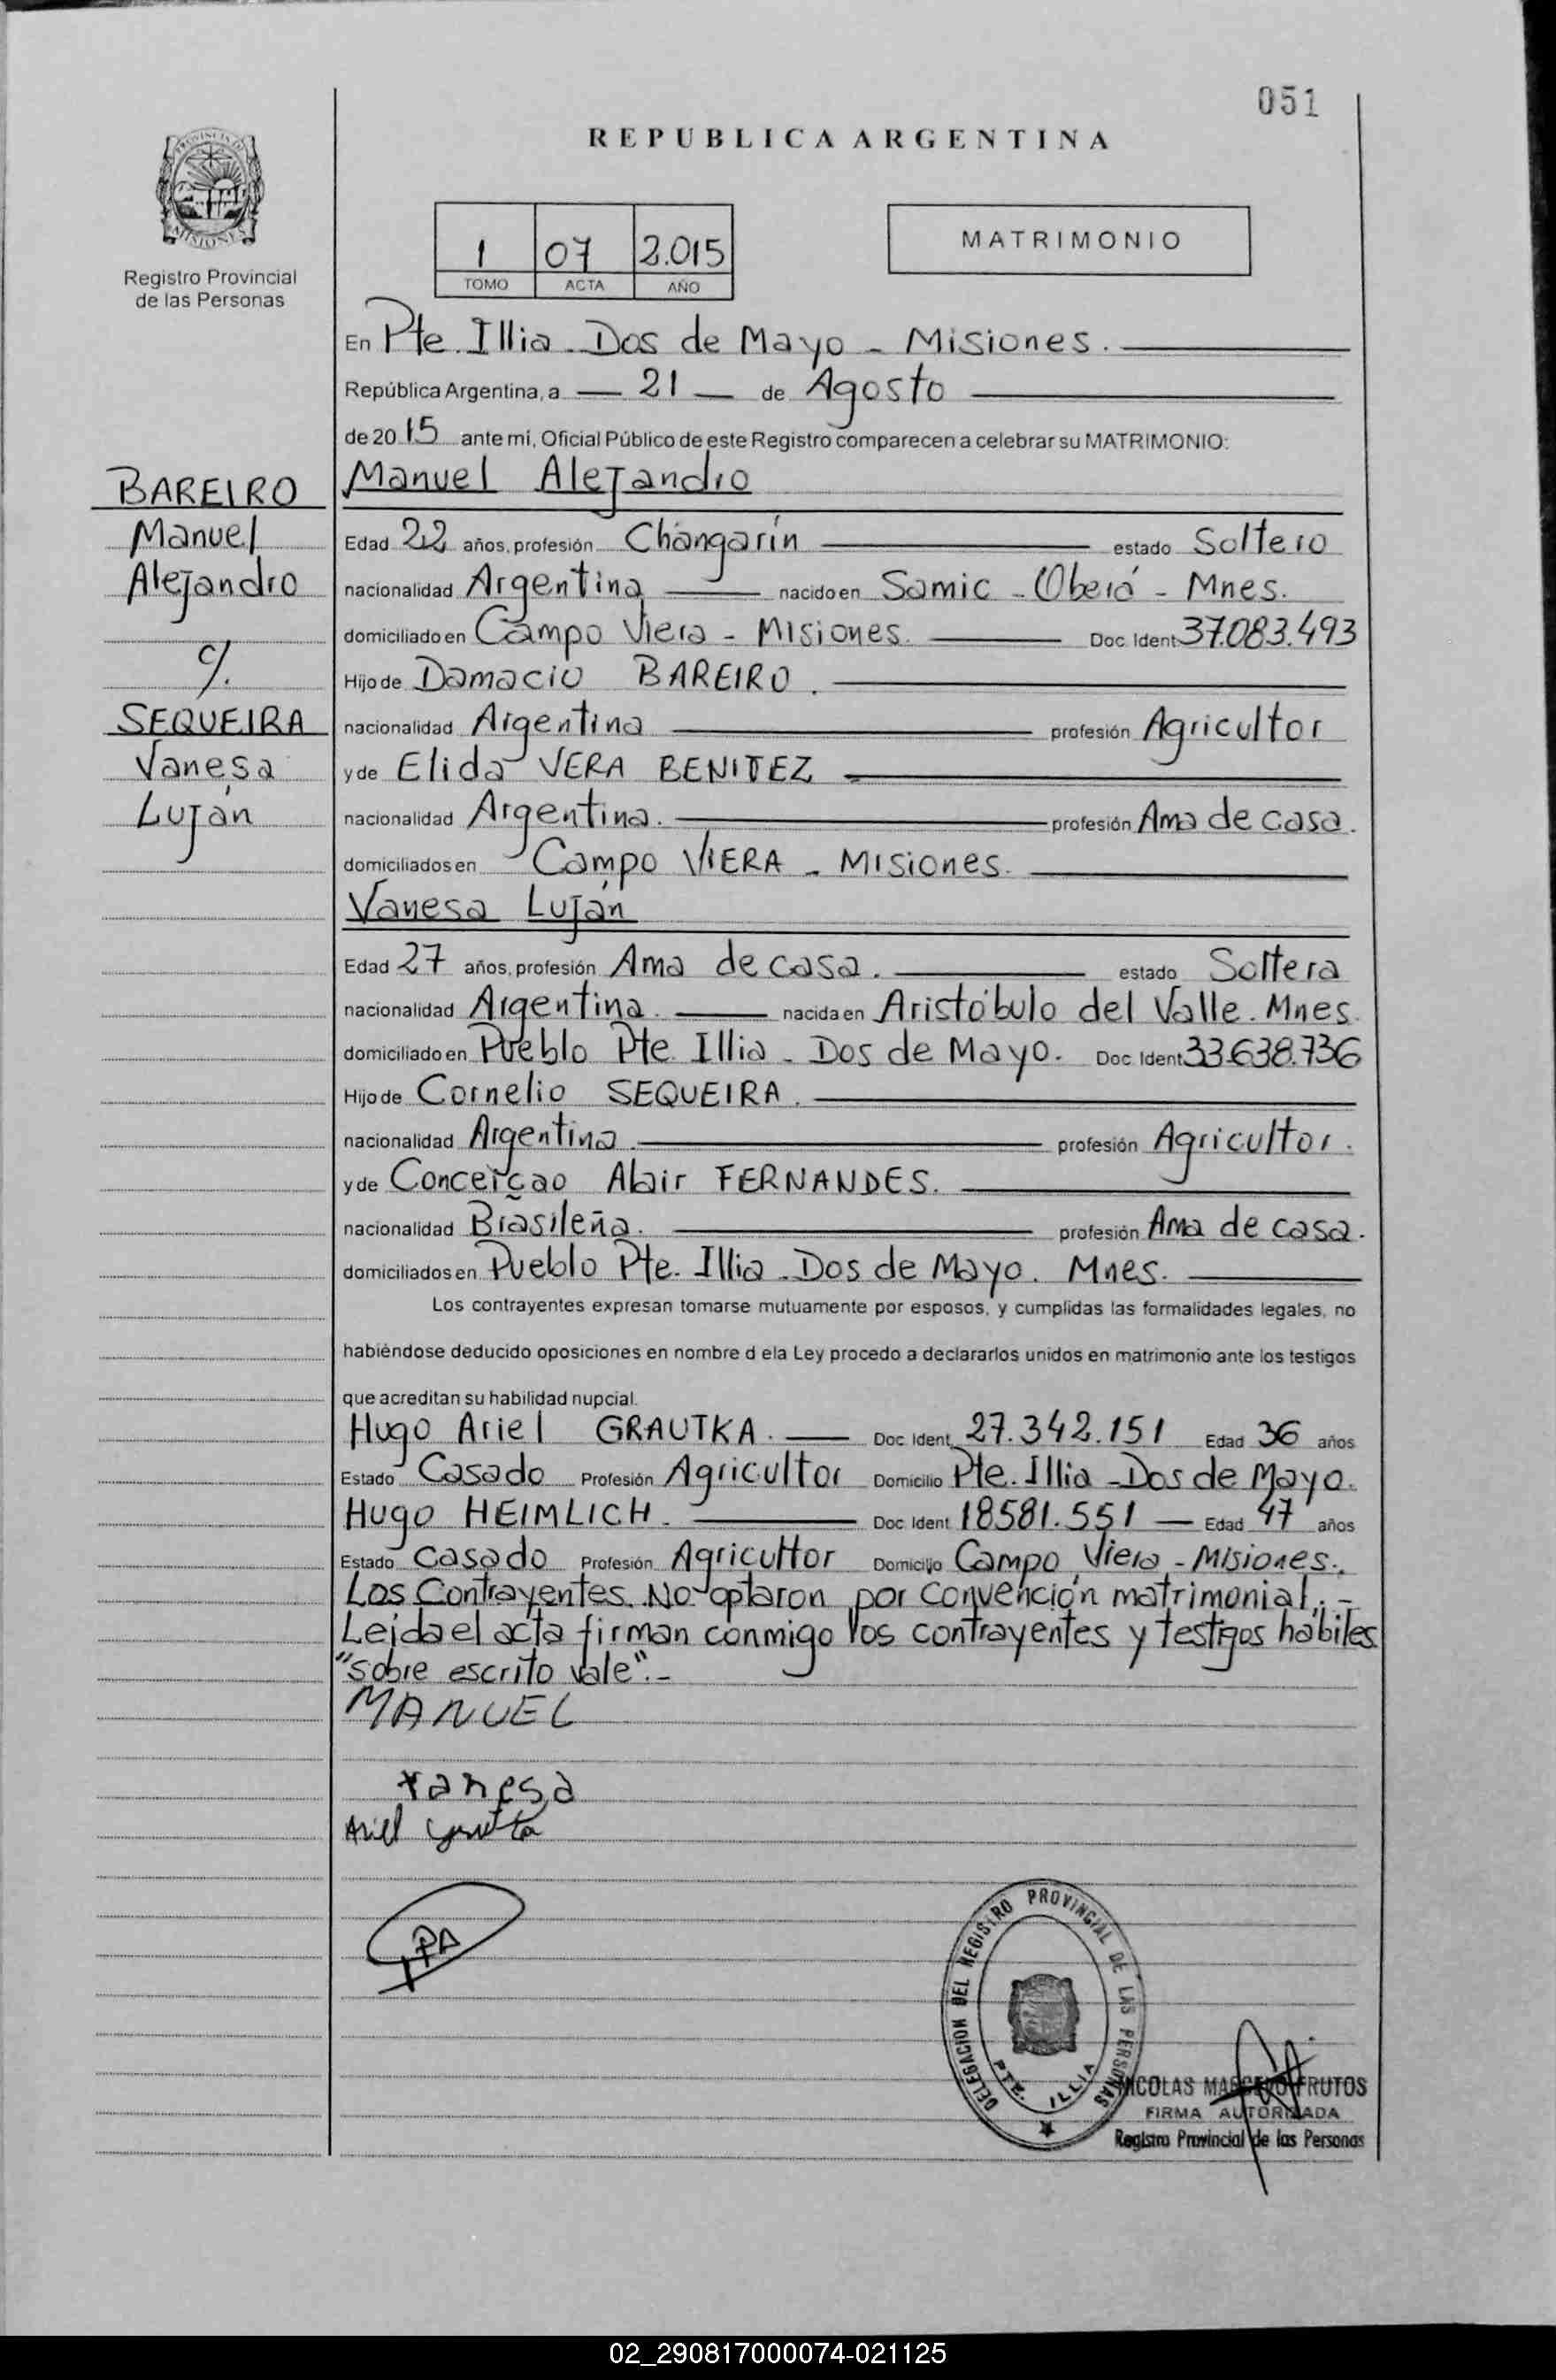 051
REPUBLICA ARGENTINA
PROVINCIA DE
MISIONES
Registro Provincial
de las Personas
1 07 2.015
TOMO ACTA AÑO
MATRIMONIO
En Pte. Illia - Dos de Mayo - Misiones.
República Argentina, a 21 de Agosto
de 20 15 ante mi, Oficial Público de este Registro comparecen a celebrar su MATRIMONIO:
BAREIRO
Manuel
Alejandro
c/.
SEQUEIRA
Vanesa
Luján
Manuel Alejandro
Edad 22 años, profesión Changarín estado Soltero
nacionalidad Argentina nacido en Samic - Oberá - Mnes.
domiciliado en Campo Viera - Misiones. Doc. Ident. 37.083.493
Hijo de Damacio BAREIRO.
nacionalidad Argentina profesión Agricultor
y de Elida VERA BENITEZ
nacionalidad Argentina. profesión Ama de casa.
domiciliados en Campo VIERA - Misiones.
Vanesa Luján
Edad 27 años, profesión Ama de casa. estado Soltera
nacionalidad Argentina. nacida en Aristóbulo del Valle. Mnes.
domiciliado en Pueblo Pte. Illia - Dos de Mayo. Doc. Ident. 33.638.736
Hijo de Cornelio SEQUEIRA.
nacionalidad Argentina. profesión Agricultor.
y de Conceiçao Alair FERNANDES.
nacionalidad Brasileña. profesión Ama de casa.
domiciliados en Pueblo Pte. Illia - Dos de Mayo. Mnes.
Los contrayentes expresan tomarse mutuamente por esposos, y cumplidas las formalidades legales, no
habiéndose deducido oposiciones en nombre d ela Ley procedo a declararlos unidos en matrimonio ante los testigos
que acreditan su habilidad nupcial.
Hugo Ariel GRAUTKA. Doc. Ident. 27.342.151 Edad 36 años
Estado Casado Profesión Agricultor Domicilio Pte. Illia - Dos de Mayo.
Hugo HEIMLICH. Doc. Ident. 18581.551 Edad 47 años
Estado Casado Profesión Agricultor Domicilio Campo Viera - Misiones.
Los Contrayentes. No optaron por convención matrimonial. -
Leida el acta firman conmigo los contrayentes y testigos hábiles
"sobre escrito vale". -
MANUEL
Vanesa
Ariel
DELEGACION DEL REGISTRO PROVINCIAL DE LAS PERSONAS
PTE. ILLIA
NICOLAS MARCELO FRUTOS
FIRMA AUTORIZADA
Registro Provincial de las Personas
02_290817000074-021125